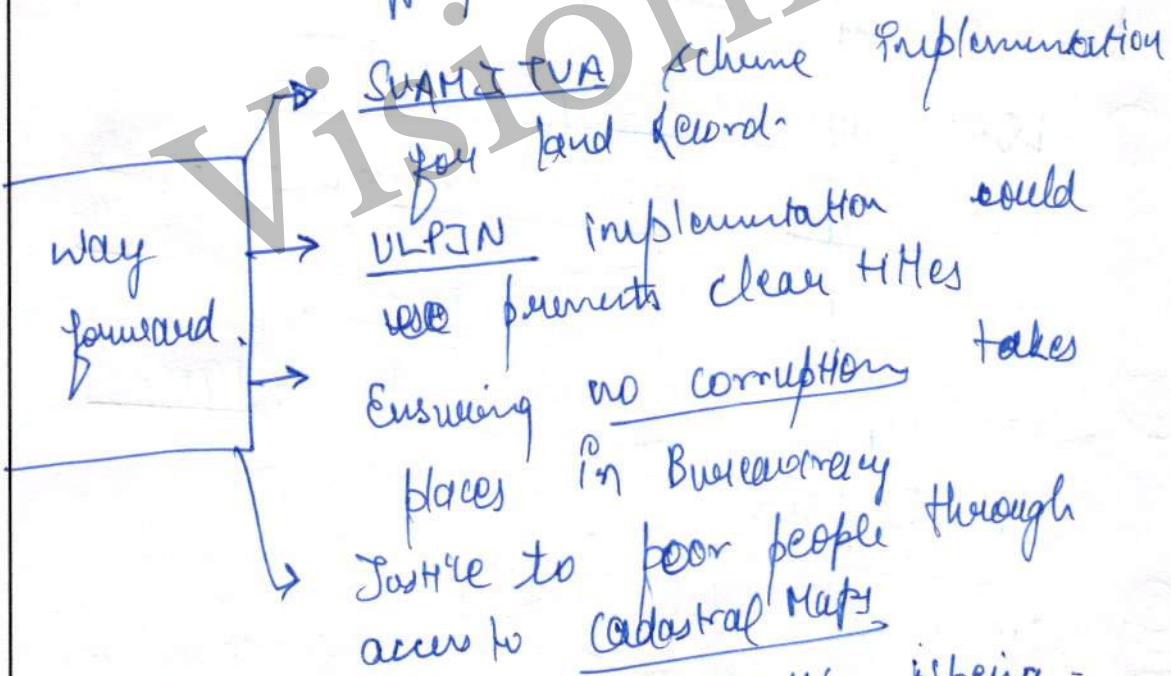 Vision
SVAMITVA scheme implementation
for land record.
way
forward.
ULPIN implementation could
prements clear titles
Ensuring no corruption takes
places in Bureaucracy
Justice to poor people through
access to Cadastral Maps